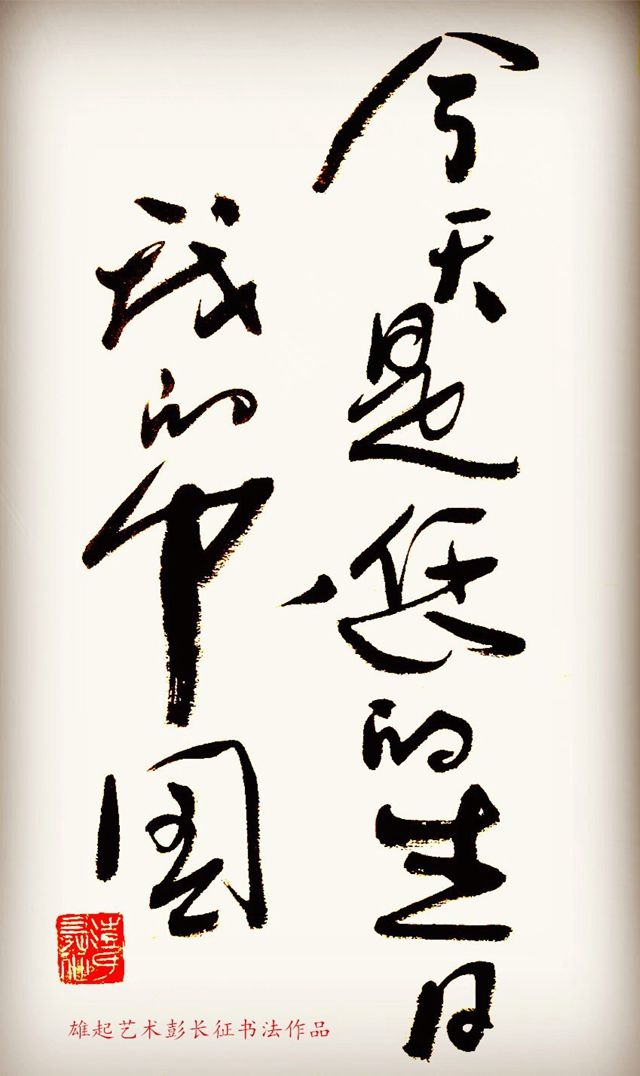 今天是您的生日
我的中国
雄起艺术彭长征书法作品